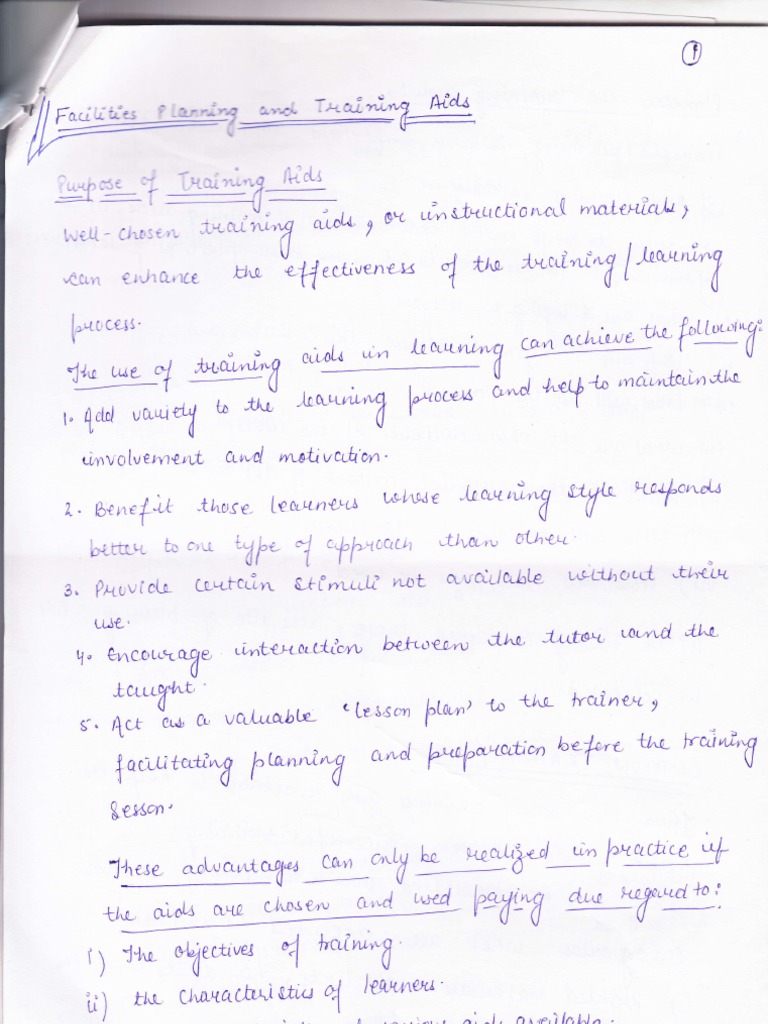 1
Facilities Planning and Training Aids
Purpose of Training Aids
Well-chosen training aids, or instructional materials,
can enhance the effectiveness of the training/learning
process.
The use of training aids in learning can achieve the following:
1. Add variety to the learning process and help to maintain the
involvement and motivation.
2. Benefit those learners whose learning style responds
better to one type of approach than other.
3. Provide certain stimuli not available without their
use.
4. Encourage interaction between the tutor and the
taught.
5. Act as a valuable 'lesson plan' to the trainer,
facilitating planning and preparation before the training
sesson.
These advantages can only be realized in practice if
the aids are chosen and used paying due regard to:
i) The objectives of training.
ii) the characteristics of learners.
aids available.